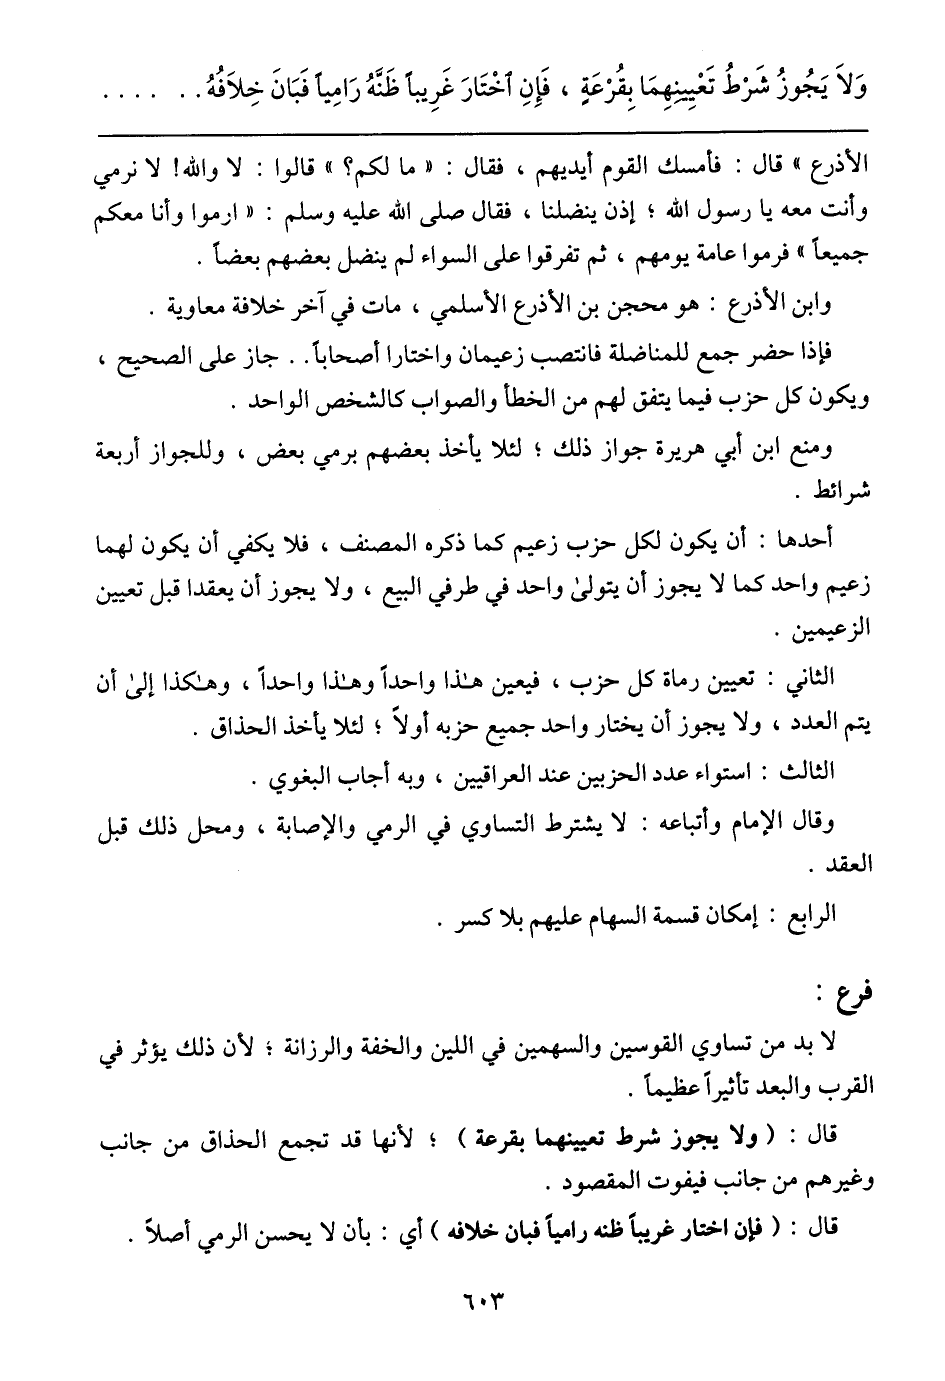 وَلاَ يَجُوزُ شَرْطُ تَعْيِينِهِمَا بِقُرْعَةٍ ، فَإِنِ ٱخْتَارَ غَرِيباً ظَنَّهُ رَامِياً فَبَانَ خِلاَفُهُ . . . . . .
الأذرع » قال : فأمسك القوم أيديهم ، فقال : « ما لكم؟ » قالوا : لا والله! لا نرمي
وأنت معه يا رسول الله ؛ إذن ينضلنا ، فقال صلى الله عليه وسلم : « ارموا وأنا معكم
جميعاً » فرموا عامة يومهم ، ثم تفرقوا على السواء لم ينضل بعضهم بعضاً .
وابن الأذرع : هو محجن بن الأذرع الأسلمي ، مات في آخر خلافة معاوية .
فإذا حضر جمع للمناضلة فانتصب زعيمان واختارا أصحاباً . . جاز على الصحيح ،
ويكون كل حزب فيما يتفق لهم من الخطأ والصواب كالشخص الواحد .
ومنع ابن أبي هريرة جواز ذلك ؛ لئلا يأخذ بعضهم برمي بعض ، وللجواز أربعة
شرائط .
أحدها : أن يكون لكل حزب زعيم كما ذكره المصنف ، فلا يكفي أن يكون لهما
زعيم واحد كما لا يجوز أن يتولىٰ واحد في طرفي البيع ، ولا يجوز أن يعقدا قبل تعيين
الزعيمين .
الثاني : تعيين رماة كل حزب ، فيعين هـٰذا واحداً وهـٰذا واحداً ، وهـٰكذا إلىٰ أن
يتم العدد ، ولا يجوز أن يختار واحد جميع حزبه أولاً ؛ لئلا يأخذ الحذاق .
الثالث : استواء عدد الحزبين عند العراقيين ، وبه أجاب البغوي .
وقال الإمام وأتباعه : لا يشترط التساوي في الرمي والإصابة ، ومحل ذلك قبل
العقد .
الرابع : إمكان قسمة السهام عليهم بلا كسر .
فرع :
لا بد من تساوي القوسين والسهمين في اللين والخفة والرزانة ؛ لأن ذلك يؤثر في
القرب والبعد تأثيراً عظيماً .
قال : ( ولا يجوز شرط تعيينهما بقرعة ) ؛ لأنها قد تجمع الحذاق من جانب
وغيرهم من جانب فيفوت المقصود .
قال : ( فإن اختار غريباً ظنه رامياً فبان خلافه ) أي : بأن لا يحسن الرمي أصلاً .
٦٠٣